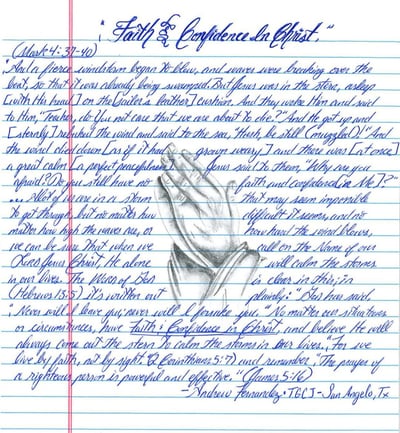 "Faith & Confidence In Christ."
(Mark 4:37-40)
"And a fierce windstorm began to blow, and waves were breaking over the
boat, so that it was already being swamped. But Jesus was in the stern, asleep
[with His head] on the [sailor's leather] cushion. And they woke Him and said
to Him, "Teacher, do You not care that we are about to die?" And He got up and
[sternly] rebuked the wind and said to the sea, "Hush, be still (muzzled)!" And
the wind died down [as if it had grown weary] and there was [at once]
a great calm [a perfect peacefulness]. Jesus said to them, "Why are you
afraid? Do you still have no faith and confidence [in Me]?"
... All of us are in a storm that may seem impossible
to get through, but no matter how difficult it seems, and no
matter how high the waves are, or how hard the wind blows,
we can be sure that when we call on the Name of our
Lord Jesus Christ, He alone will calm the storms
in our lives. The Word of God is clear in this; in
(Hebrews 13:5) its written out plainly: "God has said,
'Never will I leave you; never will I forsake you.'" No matter our situations
or circumstances, have Faith & Confidence in Christ, and believe He will
always come out the stern to calm the storms in our lives. "For we
live by faith, not by sight. (2 Corinthians 5:7) and remember, "The prayer of
a righteous person is powerful and effective." (James 5:16)
- Andrew Fernandez · TGCJ - San Angelo, Tx